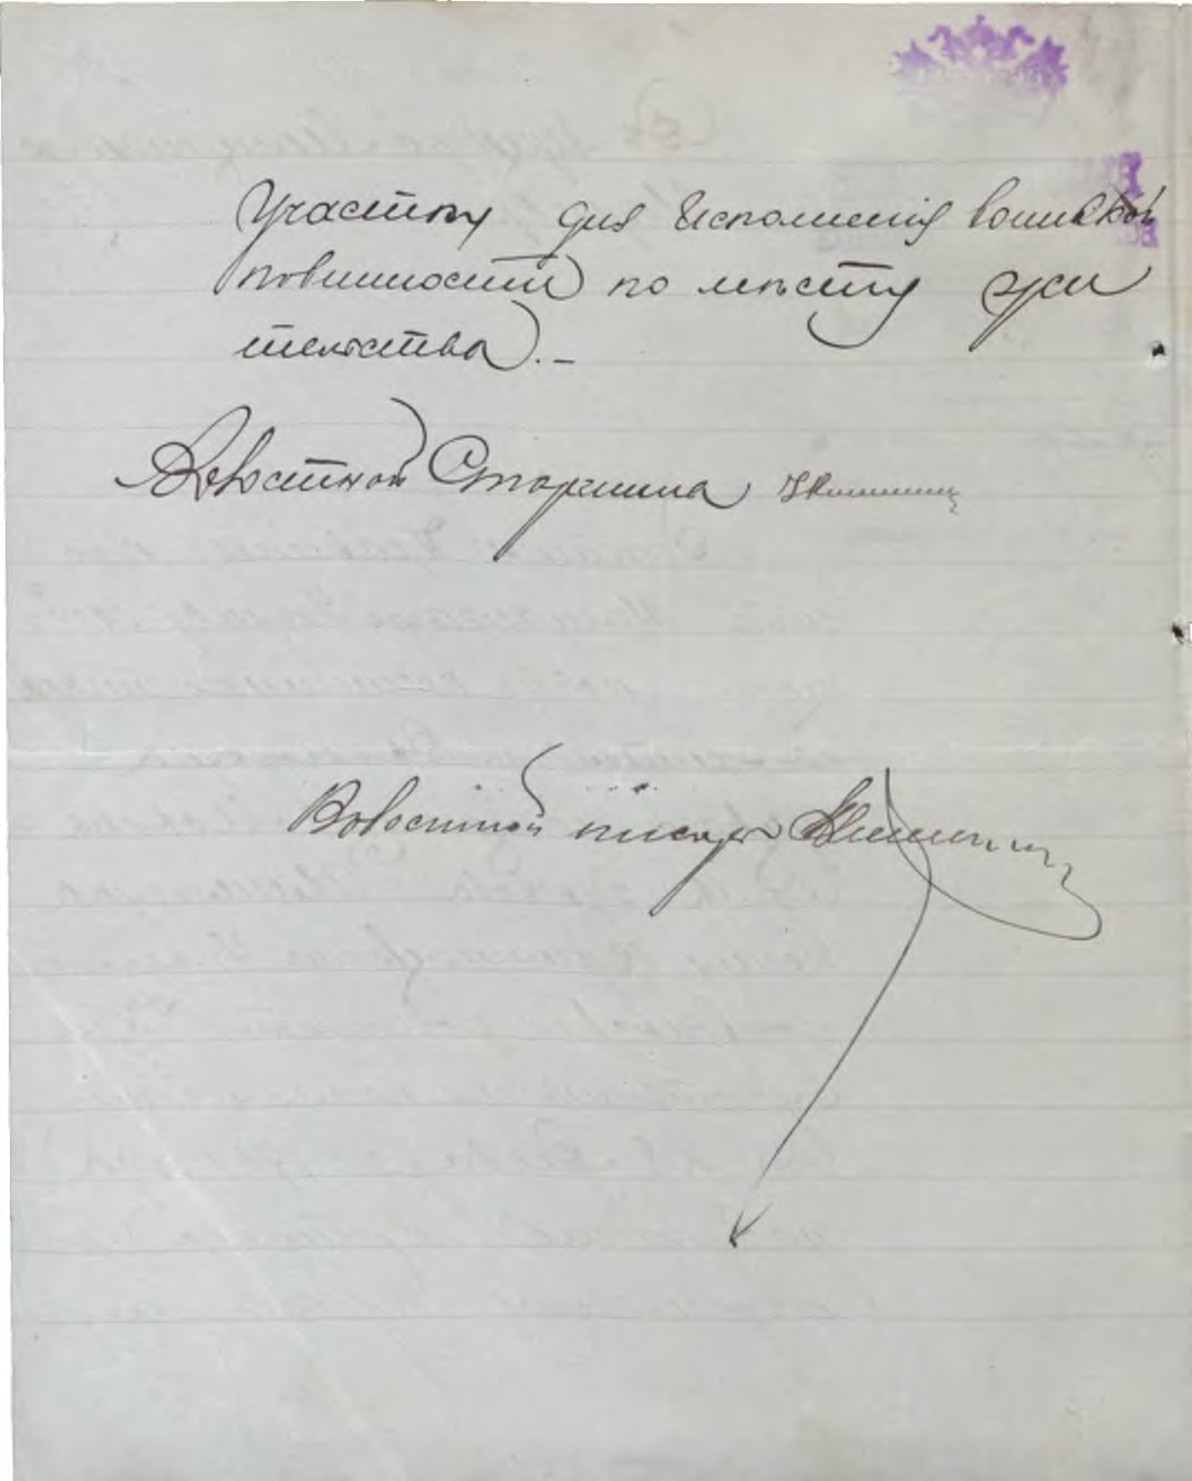 Участку для исполненія воинской
повинности по мѣсту жи
тельства. –
Волостной Старшина
Волостной писарь